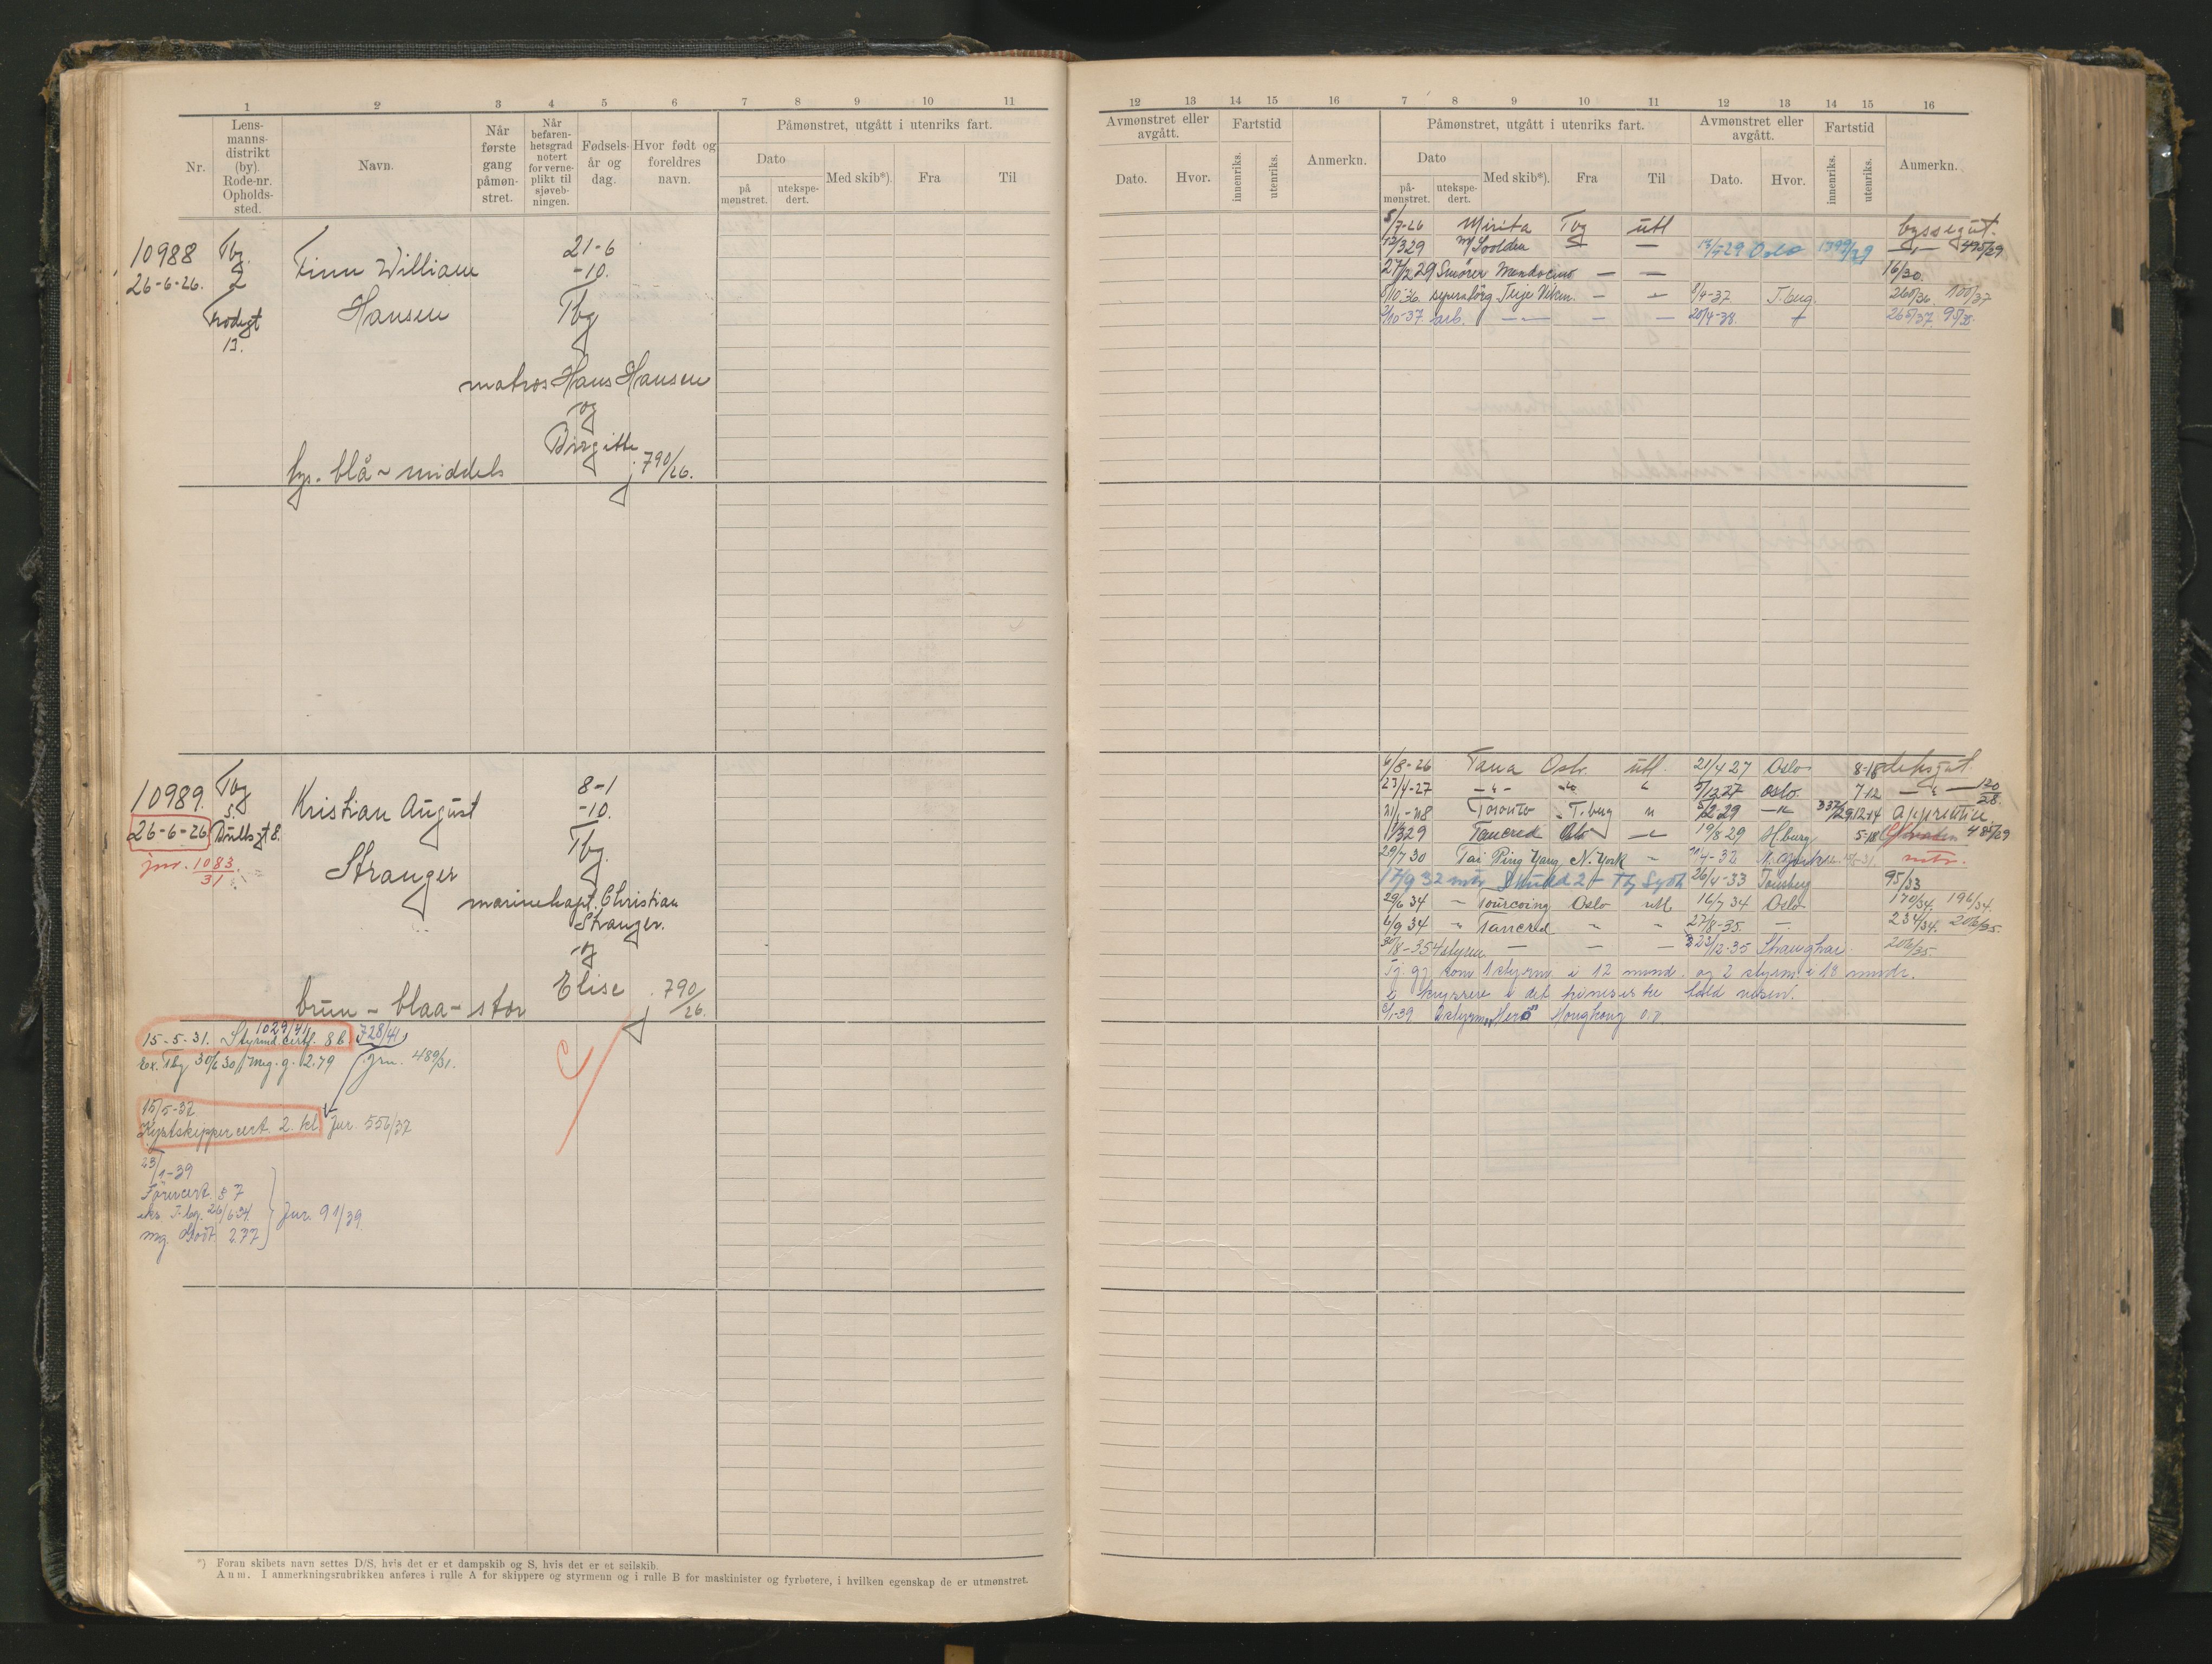 1 2 3 4 5 6 7 8 9 10 11
Nr.
Lens-
manns-
distrikt
(by).
Rode-nr.
Opholds-
sted.
Navn.
Når
første
gang
påmøn-
stret.
Når
befaren-
hetsgrad
notert
for verne-
plikt til
sjøveb-
ningen.
Fødsels-
år og
dag.
Hvor født og
foreldres
navn.
Påmønstret, utgått i utenriks fart.
Dato
på
mønstret.
utekspe-
dert.
Med skib*).
Fra
Til
10988 Tbg. 21-6
26-6-26. 2 Finn William -10.
Hansen Tbg
13.
matros Hans Hansen
og
Birgitte
lys. blå - middels 790/26.
10989. Tbg 8-1
5. Kristian August -10.
26-6-26 Bullsgt 8. Tbg.
jnr. 1083/31 Stranger
marinekapt. Christian
Stranger.
og
Elise 790/26.
brun - blaa - stor
1029/41
15-5-31. Styrmd. certf. 86. 728/41
Ex. Tbg 30/6 30 Meg. g. 2.79 jrn. 489/31.
15/5-37
Kystskippercert. 2. kl. Jnr. 556/37
23/1-39
Førercert. 87
eks. T.bg. 26/6 34 Jnr. 91/39.
mg. Godt 2.77
*) Foran skibets navn settes D/S, hvis det er et dampskib og S, hvis det er et seilskib.
Anm. I anmerkningsrubrikken anføres i rulle A for skippere og styrmenn og i rulle B for maskinister og fyrbøtere, i hvilken egenskap de er utmønstret.
12 13 14 15 16 7 8 9 10 11 12 13 14 15 16
Avmønstret eller
avgått.
Dato.
Hvor.
Fartstid
innenriks.
utenriks.
Anmerkn.
Påmønstret, utgått i utenriks fart.
Dato
på-
mønstret.
utekspe-
dert.
Med skib*).
Fra
Til
Avmønstret eller
avgått.
Dato.
Hvor.
Fartstid
innenriks.
utenriks.
Anmerkn.
5/7-26 Mirita Tbg utl byssegut.
12/3 29 — — 13/5-29 Oslo 1399/29 — 495/29
27/2 29 Smører Mendocino — — 16/30.
5/10-36. Terje Viken. — — 2/4-37 T.berg. 260/36 100/37
2/10-37. arb. — — — 20/4-38. 265/37 95/38
4/8-26 Tana Oslo utl. 21/4 27 Oslo 8-18 deksgut.
23/4-27 — " — " 5/12 27 Oslo. 7-12 — " — 170/28.
21/1-28 Toronto T.berg " 5/2 29 — " 337/29 12-14 Apprentice.
11/3 29 Tancred — 19/8 29 H.burg 5-18 485/29
29/7 30 Tai Ping Yang N. York " mtr.
17/9 32 mtr Skudd 2 - Tbg Sydh 26/4-33 Tønsberg 95/33
29/6 34 " Tourcoing Oslo utl 16/7 34 Oslo 170/34. 196/34
6/9 34 " Tancred " " 27/8-35. — 234/34. 206/35.
30/8-35 4 styrm. — — — 23/12-35 Shanghai 206/35.
Tj. gj. som 1 styrm i 12 mund. og 2 styrm i 18 mndr.
i krysser i det kinesiske told vesen.
6/1-39 2 styrm. "Herö" Hongkong o.v.